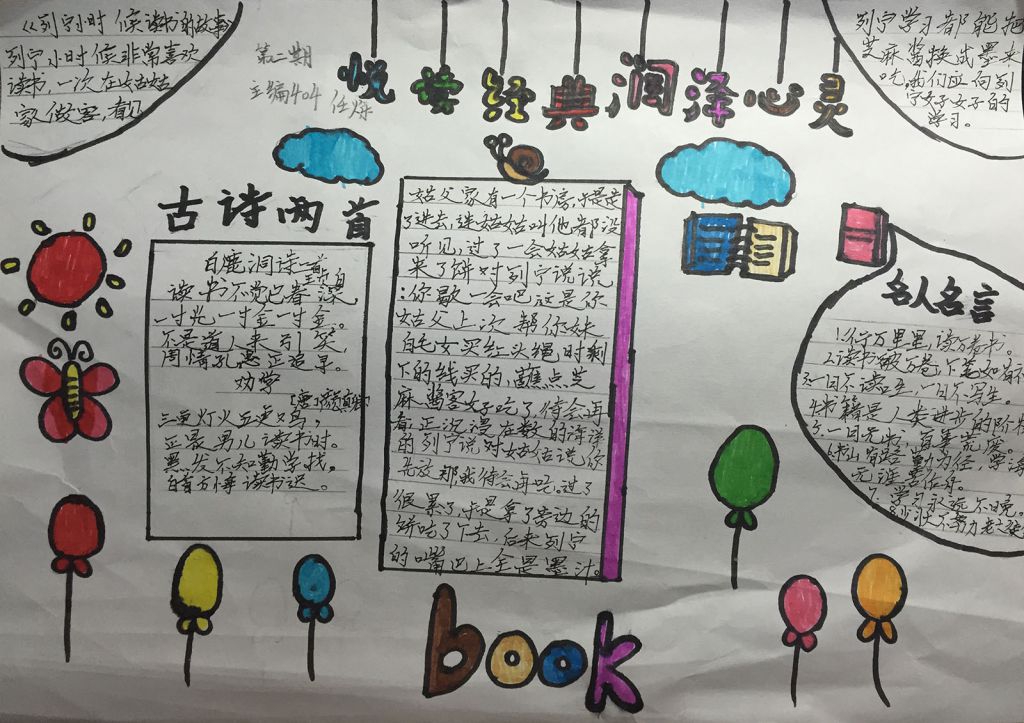 《列宁小时候读书的故事》
列宁小时候非常喜欢
读书,一次在姑姑
家做客,看见
第二期
主编404
悦读经典润泽心灵
列宁学习都能把
芝麻酱换成墨来
吃,我们应向列
宁好好的
学习。
古诗两首
白鹿洞诗二首
读书不觉已春深,
一寸光一寸金一寸金。
不是道人来引笑,
周情孔思正追寻。
劝学
三更灯火五更鸡,
正是男儿读书时。
黑发不知勤学找,
白首方悔读书迟。
姑父家有一个书房,于是走
了进去,连姑姑叫他都没
听见,过了一会姑姑拿
来了饼对列宁说说
:你歇一会吧这是你
姑父上次帮你妹
白毛女买红头绳,时剩
下的线买的,蘸点芝
麻酱
正次浸在数的海洋
的列宁说对姑姑说你
先放那我待会再吃。过了
很累了于是拿了旁边的
饼吃了下去,后来列宁
的嘴巴上全是墨汁。
名人名言
1.行万里里,读万卷书。
2.读书破万卷,下笔如有
3.一日不读
4.书籍是人类进步的阶
5.一日无书,百事荒废。
6.书山有路勤为径,学海
无涯苦作舟。
7、学习永远不晚。
8.少壮不努力老大徒
book